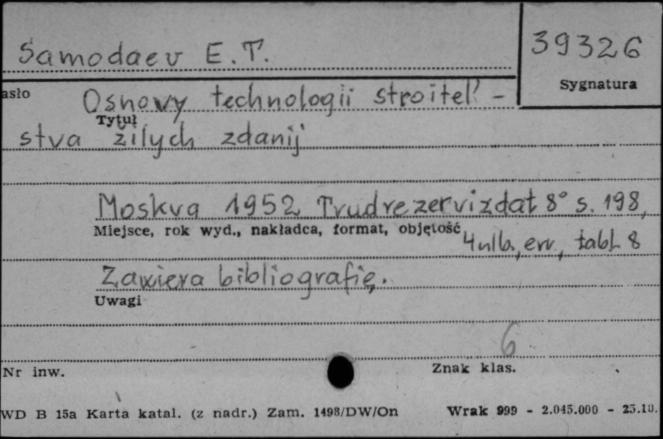 Samodaev E.T.
39326
Sygnatura
asło
Osnovy technologii stroitel' -
Tytuł
stva žilych zdanij
Moskva 1952 Trudrezervizdat 8° s. 198,
Miejsce, rok wyd., nakładca, format, objętość
4 nlb, err, tabl. 8
Zawiera bibliografię.
Uwagi
6
Nr inw.
Znak klas.
WD B 15a Karta katal. (z nadr.) Zam. 1498/DW/On
Wrak 999 - 2.045.000 - 25.10.